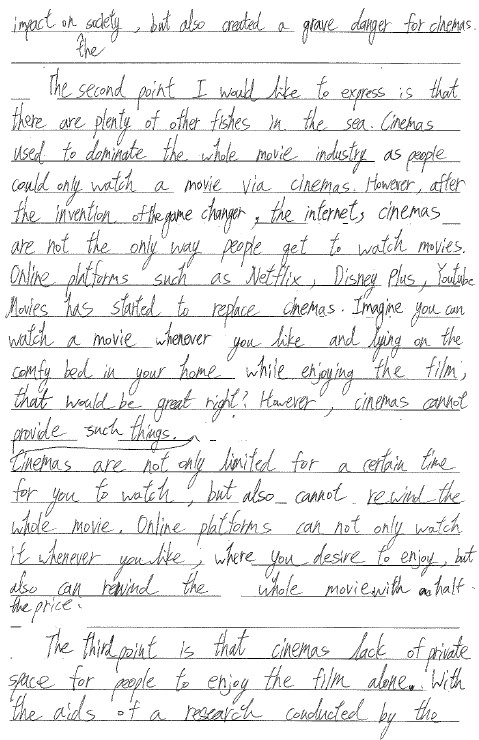 impact on society, but also created a grave danger for cinemas.
the
The second point I would like to express is that
there are plenty of other fishes in the sea. Cinemas
used to dominate the whole movie industry as people
could only watch a movie via cinemas. However, after
the invention of the game changer, the internet, cinemas
are not the only way people get to watch movies.
Online platforms such as Netflix, Disney Plus, Youtube
Movies has started to replace cinemas. Imagine you can
watch a movie whenever you like and lying on the
comfy bed in your home while enjoying the film,
that would be great right? However, cinemas cannot
provide such things.
Cinemas are not only limited for a certain time
for you to watch, but also cannot rewind the
whole movie. Online platforms can not only watch
it whenever you like, where you desire to enjoy, but
also can rewind the whole movie with a half
the price.
The third point is that cinemas lack of private
space for people to enjoy the film alone. With
the aids of a research conducted by the